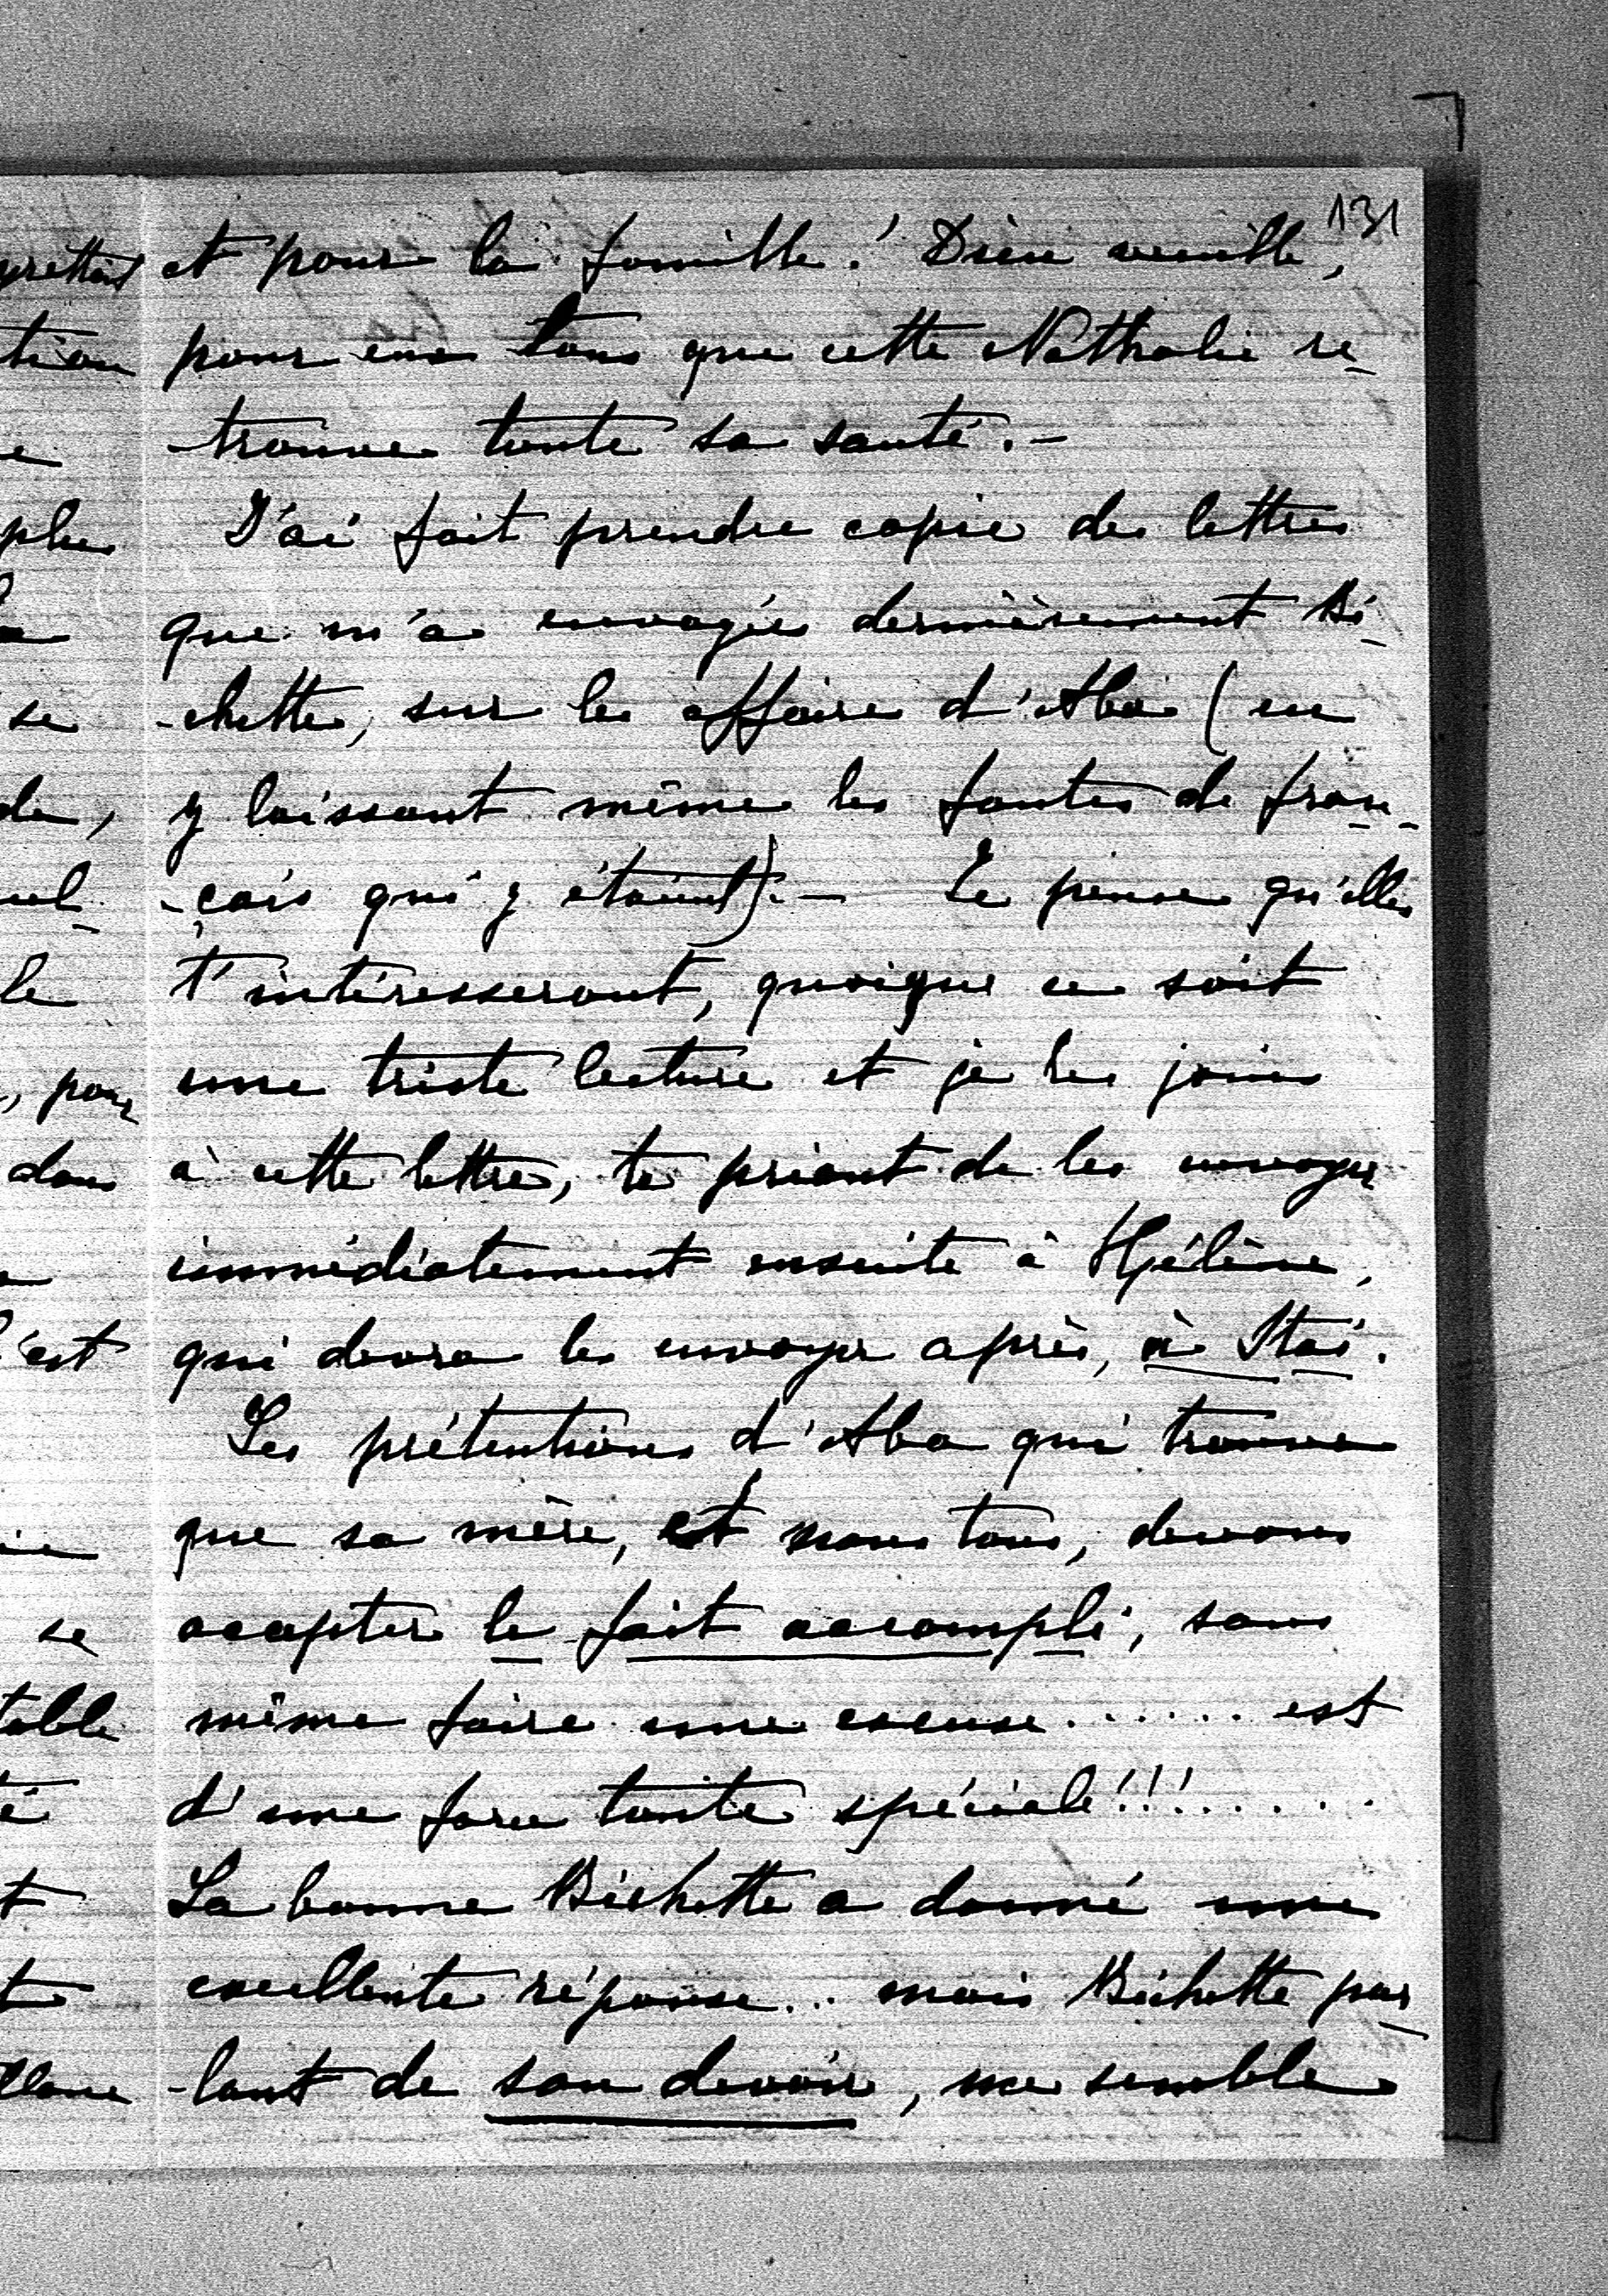 131
et pour la famille! Dieu veuille,
pour eux tous que cette Nathalie re
trouve toute sa santé.-
J'ai fait prendre copie des lettres
que m'a envoyées dernièrement Bi
-chette, sur les affaires d'Aba (en
y laissant même les fautes de fran-
-çais qui y étaient).- Je pense qu'elles
t'intéresseront, quoique ce soit
une triste lecture et je les joins
à cette lettre, te priant de les envoyer
immédiatement ensuite à Hélène,
qui devra les envoyer après, à Staï.
Les prétentions d'Aba qui trouve
que sa mère, et nous tous, devons
accepter le fait accompli, sans
même faire une excuse...... est
d'une force toute spéciale!!!.......
La bonne Bichette a donné une
excellente réponse... mais Bichette par
-lant de son devoir, me semble